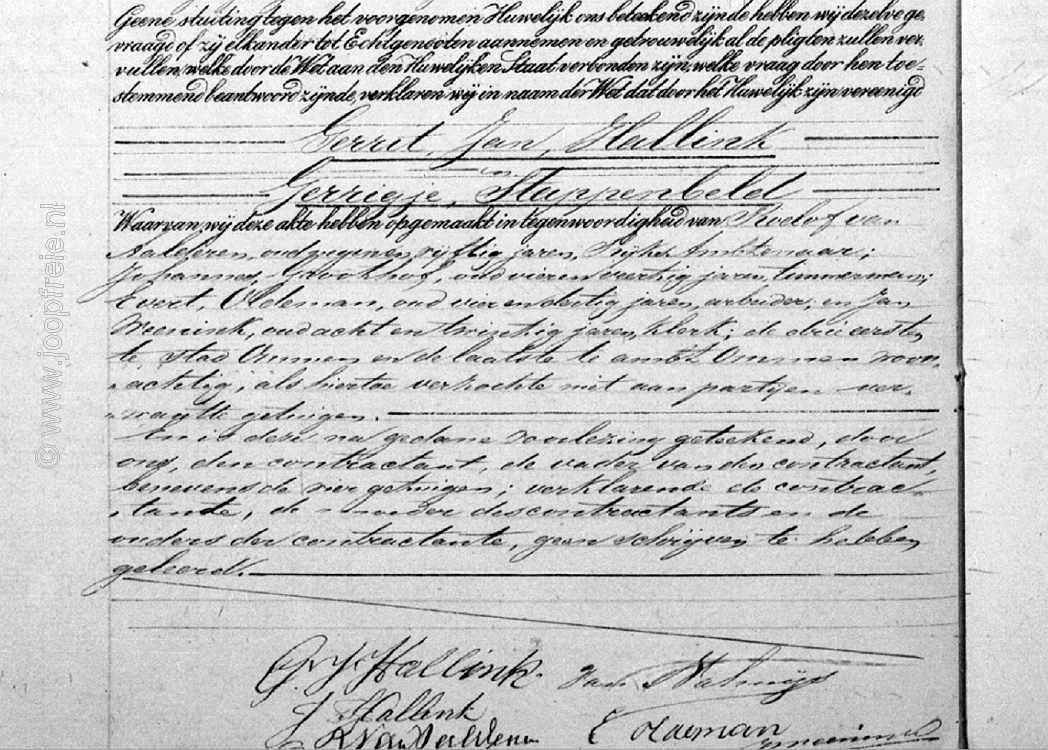 Geene stuiting tegen het voorgenomen Huwelijk ons beteekend zijnde hebben wij dezelve ge-
vraagd of zij elkander tot Echtgenooten aannemen en getrouwelijk al de pligten zullen ver-
vullen, welke door de Wet aan den Huwelijken Staat verbonden zijn, welke vraag door hen toe-
stemmend beantwoord zijnde, verklaren wij in naam der Wet dat door het Huwelijk zijn vereenigd
Gerrit, Jan, Hallink
en
Gerrigje, Stappenbeld
Waarvan wij deze akte hebben opgemaakt in tegenwoordigheid van Roelof van
Aalderen, oud jaren, Rijks Ambtenaar;
Johannes oud vier en veertig jaren, timmerman;
Evert, Oldeman, oud vier en dertig jaren, arbeider; en Jan
Weenink, oud acht en twintig jaren, klerk; de drie eersten
te stad Ommen en de laatste te ambt Ommen woon-
achtig, als hiertoe verzochte met aan partijen ver-
maagde getuigen.
En is deze na gedane voorlezing geteekend, door
ons, den contractant, de vader van den contractant,
benevens de vier getuigen; verklarende de contrac-
tante, de moeder des contractants en de
ouders der contractante, geen schrijven te hebben
geleerd.
G. J. Hallink.
J Hallink
R Van Aalderen
E Oldeman
© www.joopfreie.nl